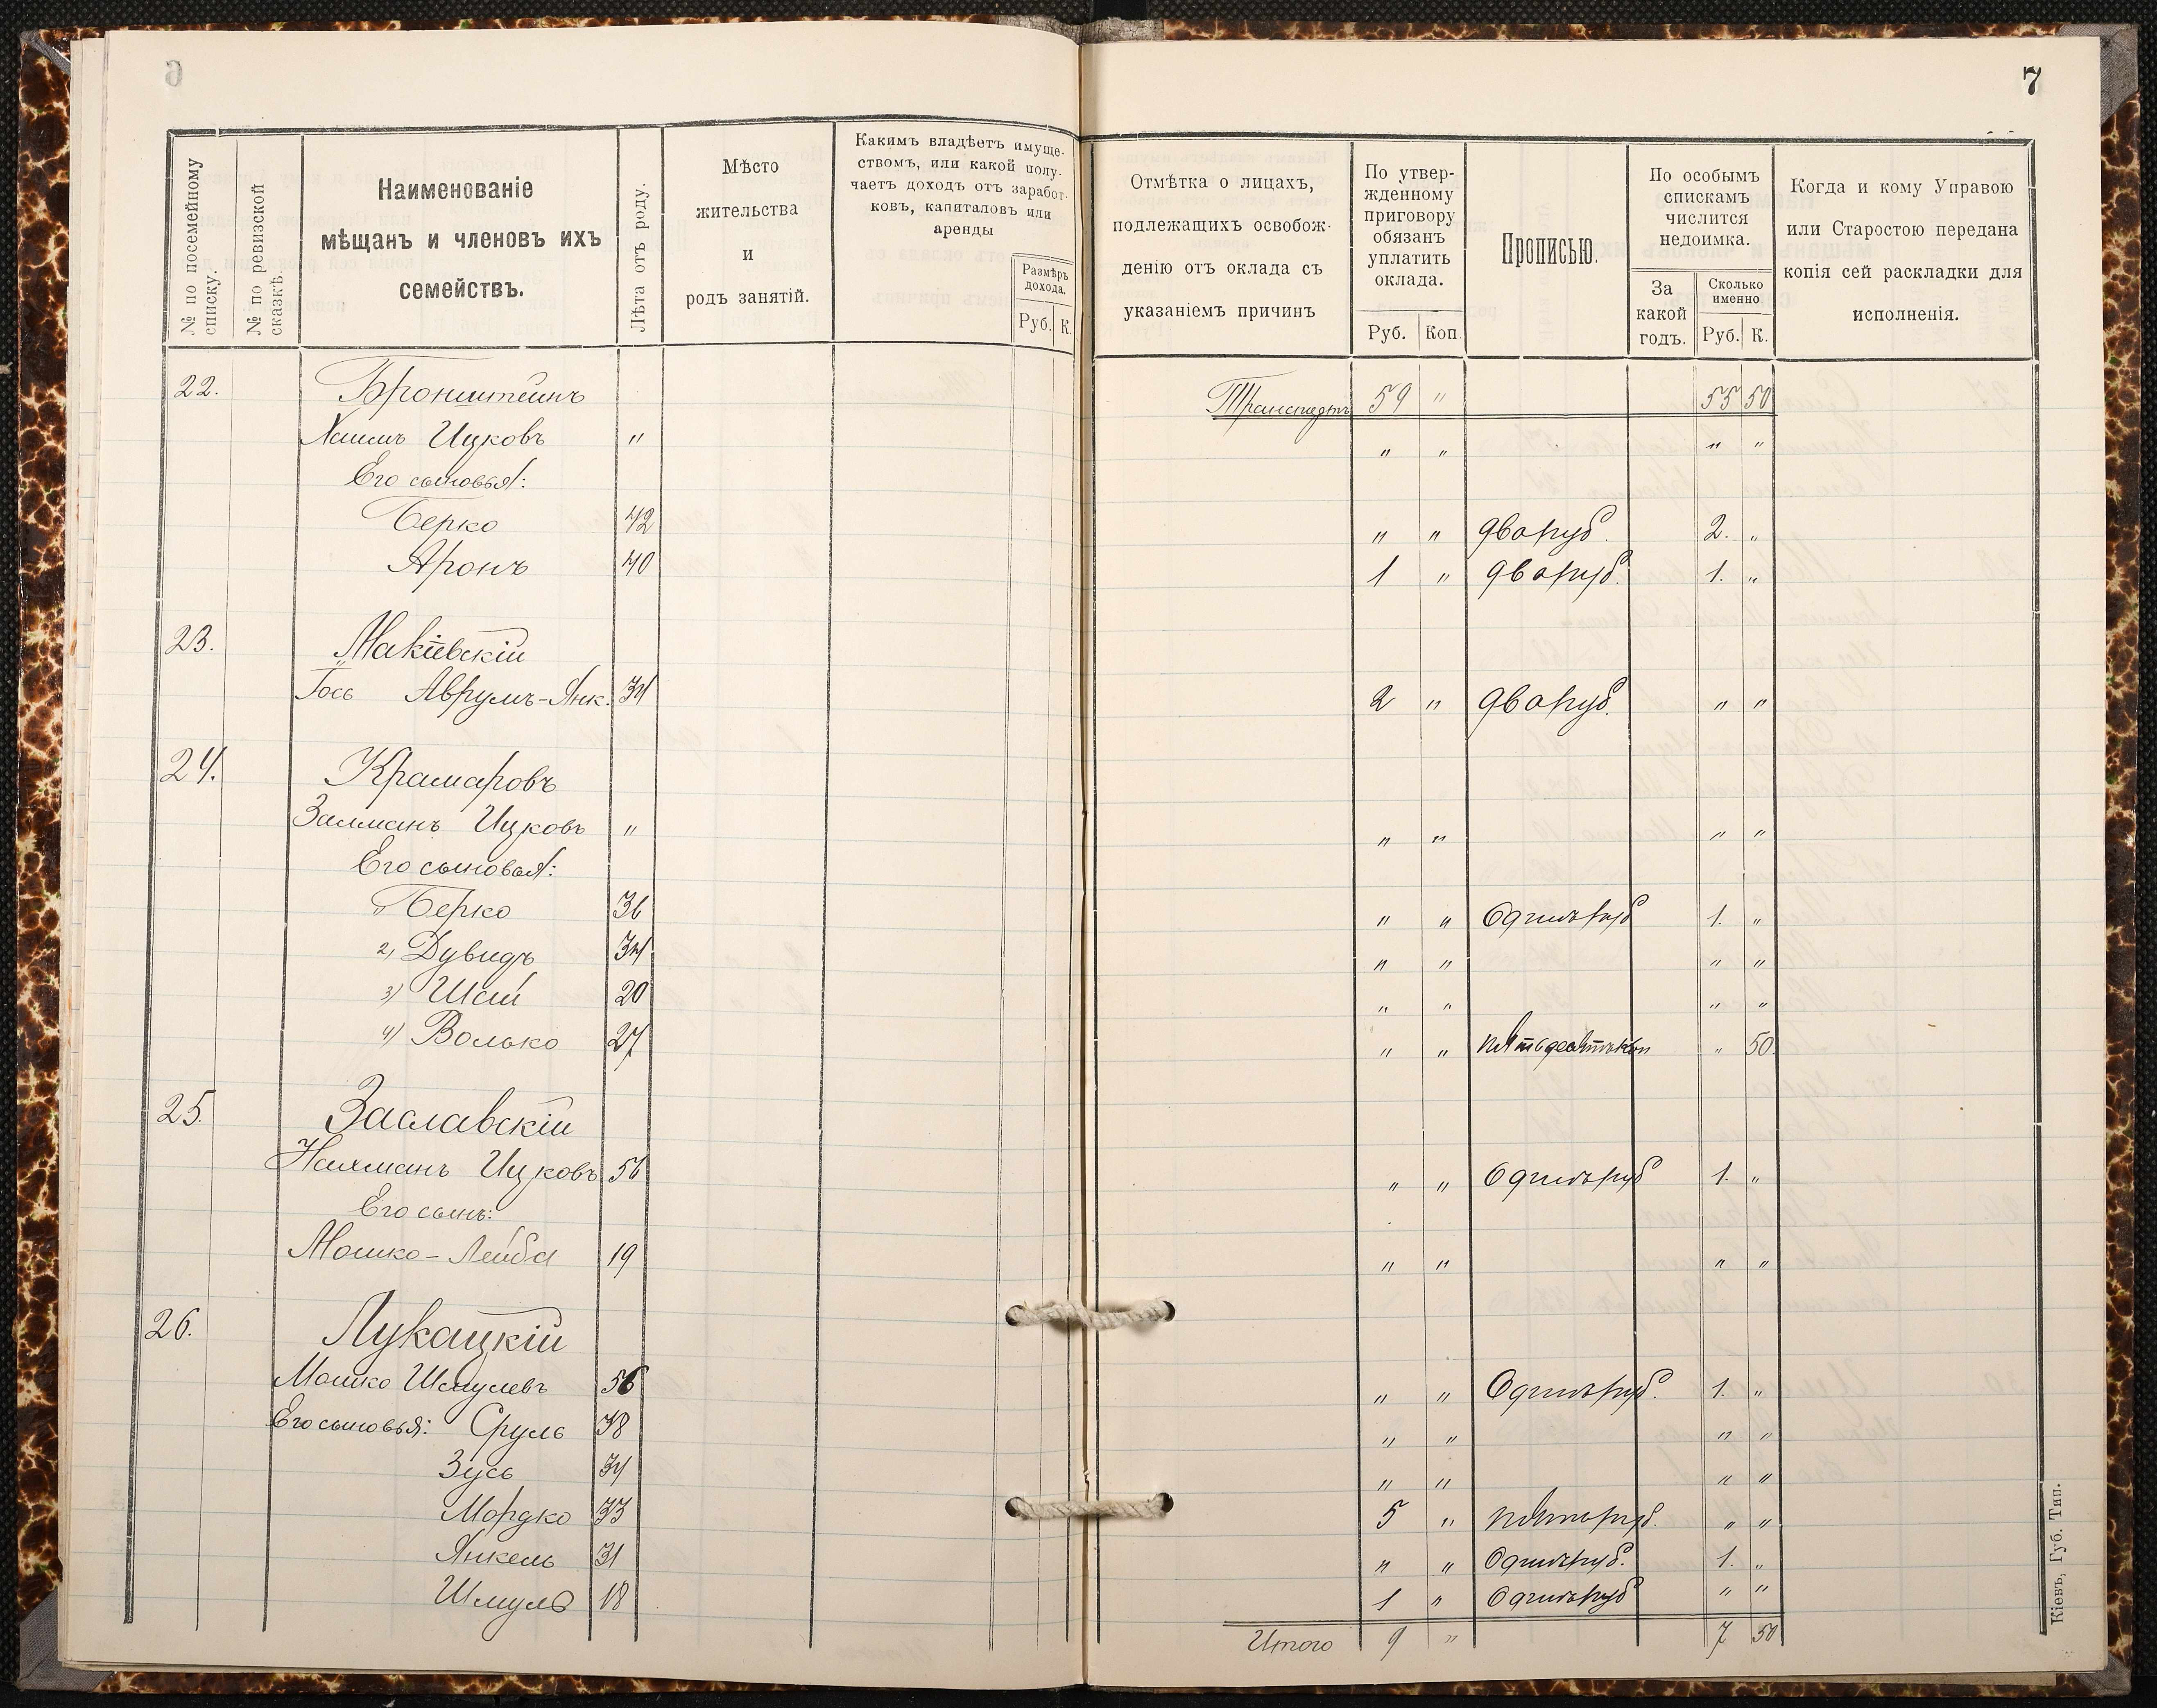 6
7
№ по посемейному списку.
№ по ревизской сказкѣ.
Наименованіе мѣщанъ и членовъ ихъ семействъ.
Лѣта отъ роду.
Мѣсто жительства и родъ занятій.
Какимъ владѣетъ имуще-
ствомъ, или какой полу-
чаетъ доходъ отъ заработ-
ковъ, капиталовъ или
аренды
Размѣръ дохода.
Руб. К.
Отмѣтка о лицахъ,
подлежащихъ освобож-
денію отъ оклада съ
указаніемъ причинъ
По утвер-
жденному
приговору
обязанъ
уплатить
оклада.
Руб. Коп.
Прописью.
По особымъ
спискамъ
числится
недоимка.
За какой годъ.
Сколько именно
Руб. К.
Когда и кому Управою
или Старостою передана
копія сей раскладки для
исполненія.
22. Бронштейнъ Транспортъ 59 " 55 50
Хаимъ Ицковъ " " " " "
Его сыновья:
Берко 42 " " два руб. 2. "
Аронъ 40 1 " два руб. 1. "
23. Макіевскій
Гось Аврумъ-Янк. 34 2 " два руб. " "
24. Крамаровъ
Залманъ Ицковъ " " " " "
Его сыновья:
Берко 36 " " Одинъ руб 1. "
2) Дувидъ 34 " " " "
3) Шая 20 " " " "
4) Волько 27 " " пятьдесятъ коп " 50
25. Заславскій
Нахманъ Ицковъ 56 " " Одинъ руб 1. "
Его сынъ:
Мошко-Лейба 19 " " " "
26. Лукацкій
Мошко Шмулевъ 56 " " Одинъ руб. 1. "
Его сыновья: Сруль 38 " " " "
Зусь 34 " " " "
Мордко 33 5 " пять руб. " "
Янкель 31 " " Одинъ руб. 1. "
Шмуль 18 1 " Одинъ руб " "
Итого 9 " 7 50
Кіевъ, Губ. Тип.